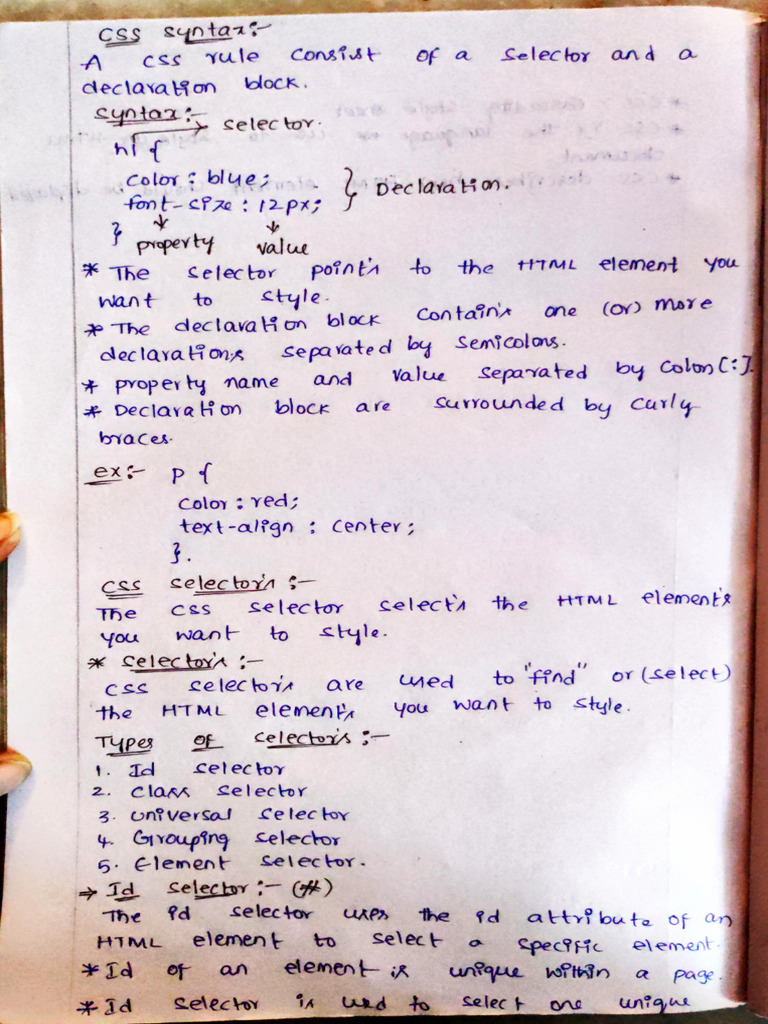 CSS syntax:-
A CSS rule consist of a selector and a
declaration block.
syntax:-
→ selector.
h1 {
color : blue;
font-size : 12px;
} Declaration.
}
property value
* The selector point's to the HTML element you
want to style.
* The declaration block contain's one (or) more
declaration,s separated by semicolons.
* property name and value separated by colon [:].
* Declaration block are surrounded by curly
braces.
ex:- p {
color : red;
text-align : center;
}.
CSS selector's :-
The CSS selector select's the HTML element's
you want to style.
* selector's :-
CSS selector's are used to "find" or (select)
the HTML element's you want to style.
Types of selector's :-
1. Id selector
2. class selector
3. universal selector
4. Grouping selector
5. Element selector.
→ Id selector :- (#)
The id selector uses the id attribute of an
HTML element to select a specific element.
* Id of an element is unique within a page.
* Id selector is used to select one unique